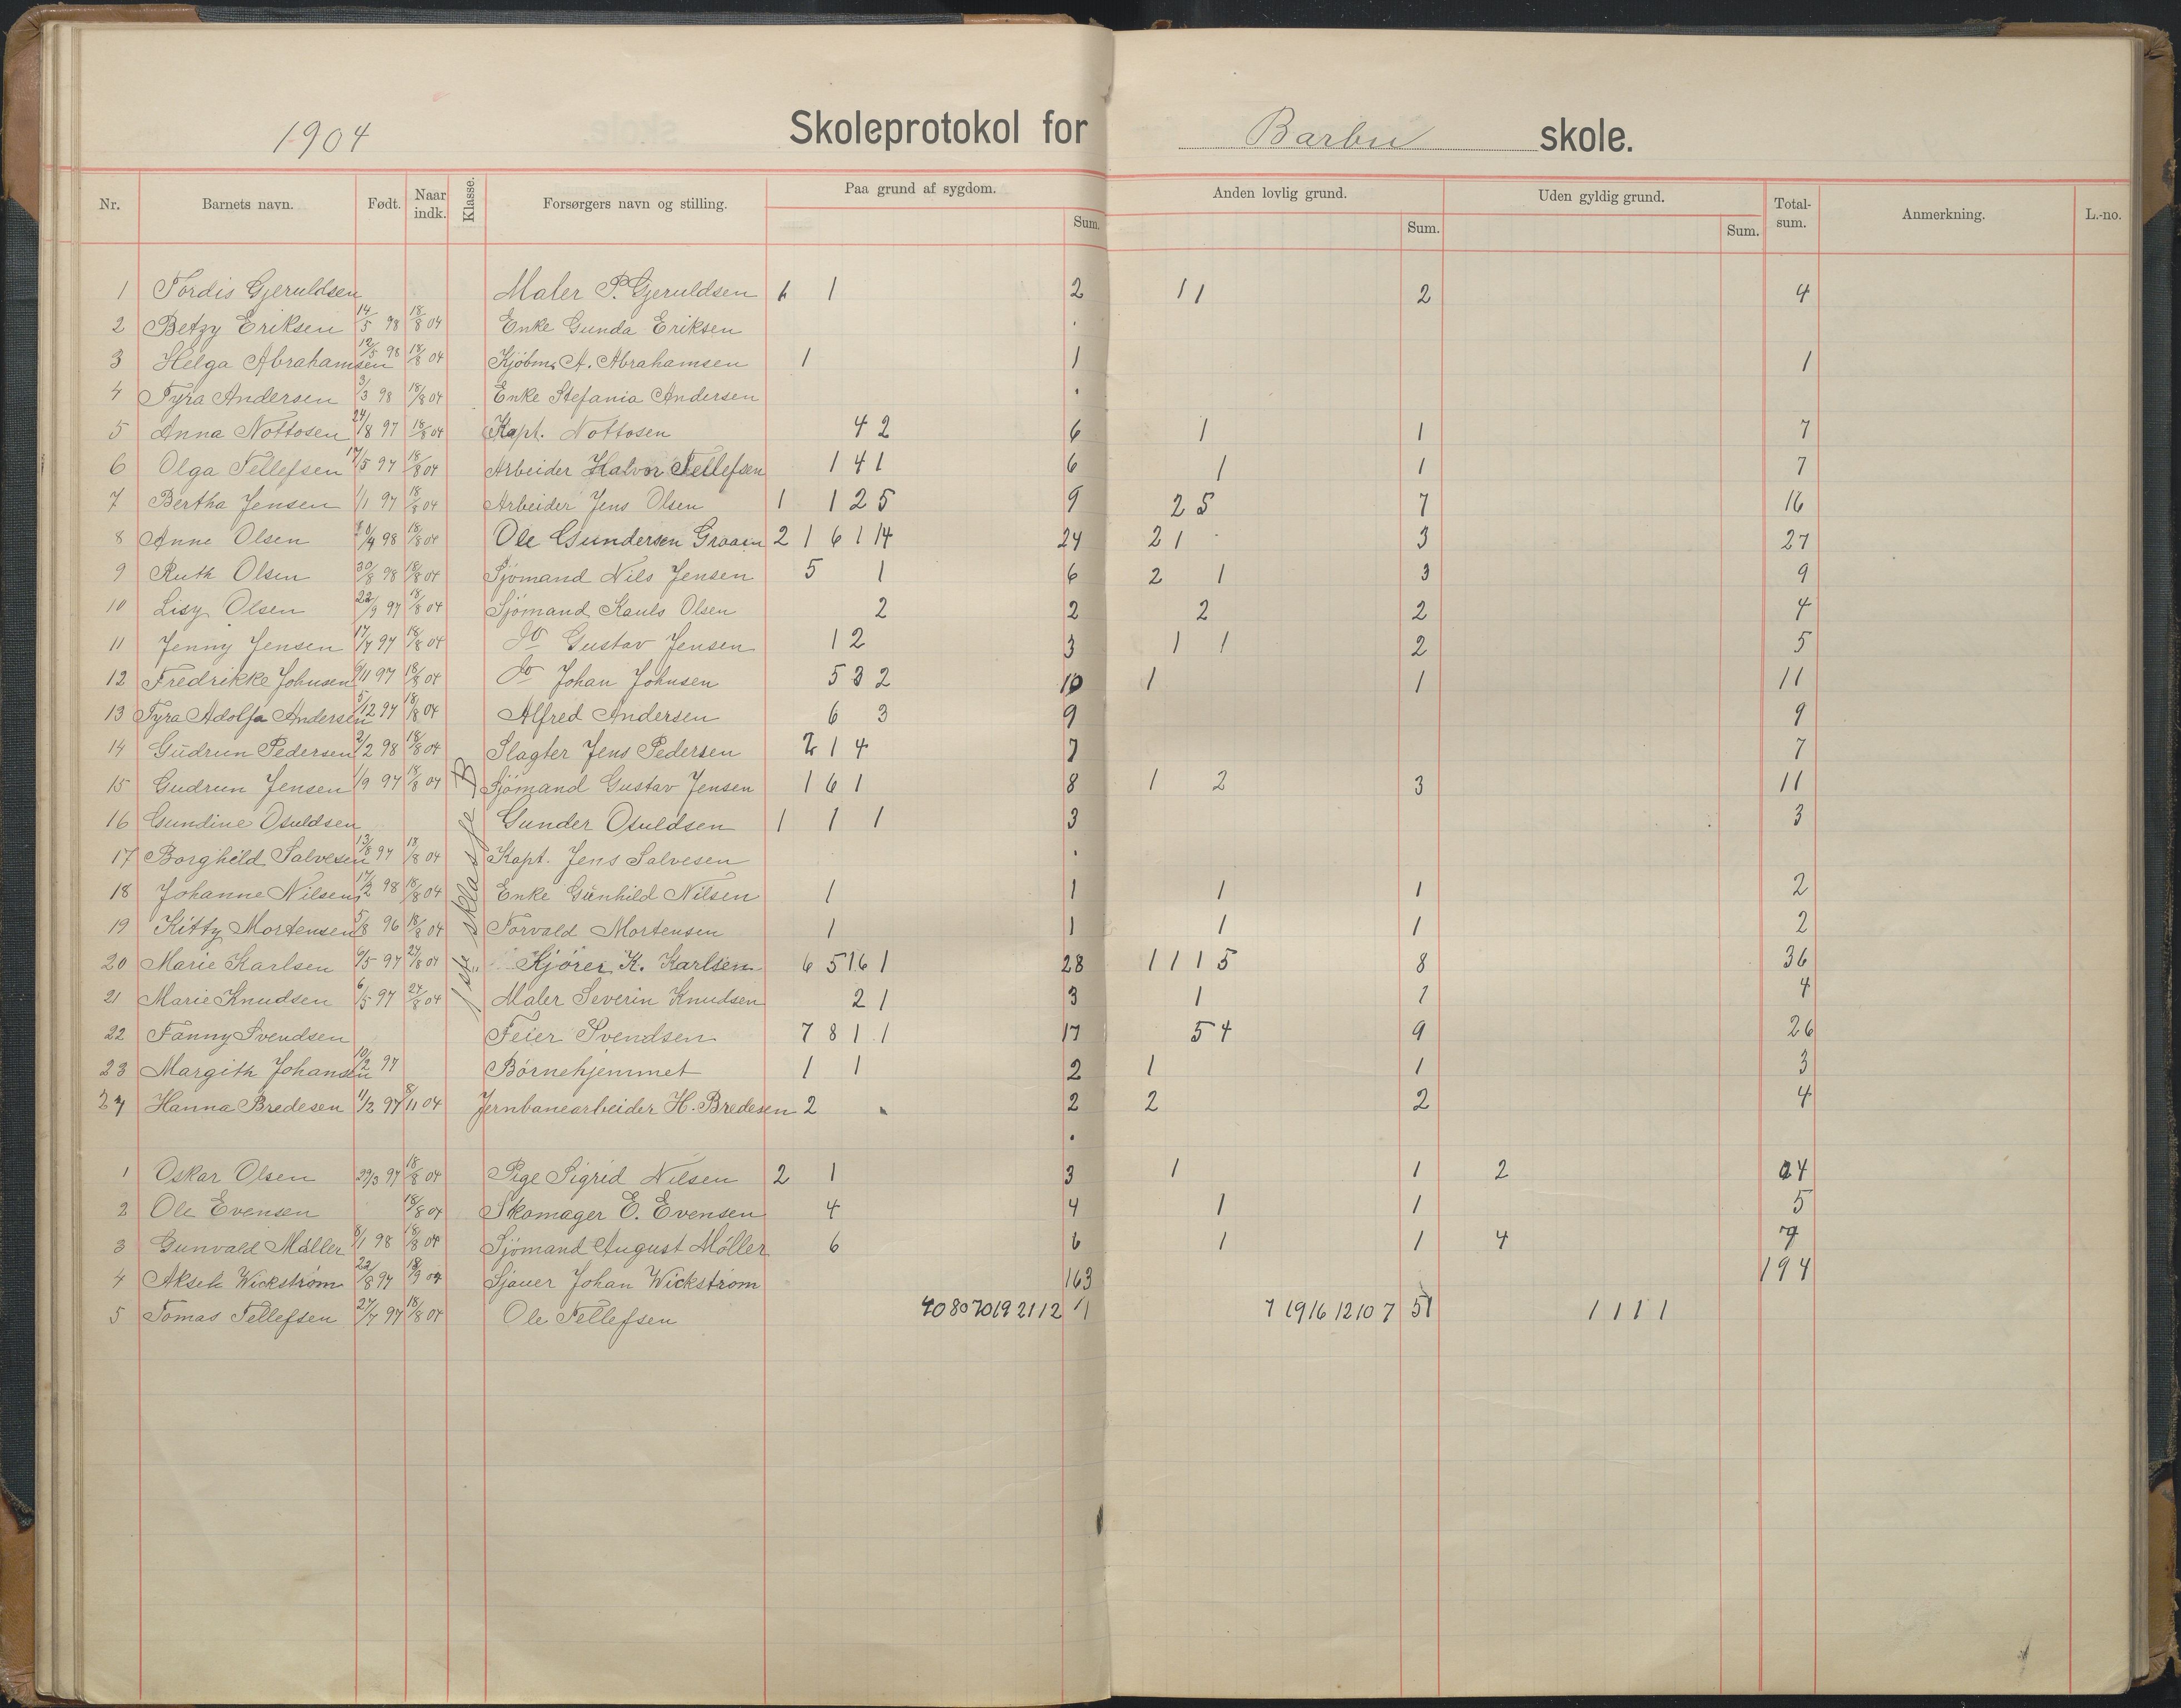 1904 Skoleprotokol for Barbu skole.
Nr. Barnets navn. Født. Naar indk. Klasse. Forsørgers navn og stilling. Paa grund af sygdom. Sum. Anden lovlig grund. Sum. Uden gyldig grund. Sum. Total-sum. Anmerkning. L.-no.
1ste klasse B
1 Tordis Gjeruldsen Maler P. Gjeruldsen 1 1 2 1 1 2 4
2 Betzy Eriksen 14/5 98 18/8 04 Enke Gunda Eriksen
3 Helga Abrahamsen 12/5 98 18/8 04 Kjøbm. A. Abrahamsen 1 1 1
4 Tyra Andersen 3/3 98 18/8 04 Enke Stefania Andersen
5 Anna Nottosen 24/8 97 18/8 04 Kapt. Nottosen 4 2 6 1 1 7
6 Olga Tellefsen 17/5 97 18/8 04 Arbeider Halvor Tellefsen 1 4 1 6 1 1 7
7 Bertha Jensen 1/1 97 18/8 04 Arbeider Jens Olsen 1 1 2 5 9 2 5 7 16
8 Anne Olsen 98 18/8 04 Ole Gundersen Graaen 2 1 6 1 14 24 2 1 3 27
9 Ruth Olsen 30/8 98 18/8 04 Sjømand Nils Jensen 5 1 6 2 1 3 9
10 Lisy Olsen 22/9 97 18/8 04 Sjømand Kauls Olsen 2 2 2 2 4
11 Jenny Jensen 17/7 97 18/8 04 Do Gustav Jensen 1 2 3 1 1 2 5
12 Fredrikke Johnsen 9/11 97 18/8 04 Do Johan Johnsen 5 3 2 10 1 1 11
13 Tyra Adolfa Andersen 5/12 97 18/8 04 Alfred Andersen 6 3 9 9
14 Gudrun Pedersen 2/2 98 18/8 04 Slagter Jens Pedersen 2 1 4 7 7
15 Gudrun Jensen 1/9 97 18/8 04 Sjømand Gustav Jensen 1 6 1 8 1 2 3 11
16 Gundine Osuldsen Gunder Osuldsen 1 1 1 3 3
17 Borghild Salvesen 13/8 97 18/8 04 Kapt. Jens Salvesen
18 Johanne Nilsen 17/2 98 18/8 04 Enke Gunhild Nilsen 1 1 1 1 2
19 Kitty Mortensen 5/8 96 18/8 04 Torvald Mortensen 1 1 1 1 2
20 Marie Karlsen 9/5 97 27/8 04 Kjører K. Karlsen 6 5 16 1 28 1 1 1 5 8 36
21 Marie Knudsen 6/5 97 27/8 04 Maler Severin Knudsen 2 1 3 1 1 4
22 Fanny Svendsen Feier Svendsen 7 8 1 1 17 5 4 9 26
23 Margith Johansen 10/2 97 Børnehjemmet 1 1 2 1 1 3
24 Hanna Bredesen 11/2 97 8/11 04 Jernbanearbeider H. Bredesen 2 2 2 2 4
1 Oskar Olsen 29/3 97 18/8 04 Pige Sigrid Nilsen 2 1 3 1 1 2 4
2 Ole Evensen 18/8 04 Skomager E. Evensen 4 4 1 1 5
3 Gunvald Møller 8/1 98 18/8 04 Sjømand August Møller 6 6 1 1 4 7
4 Aksel Wickstrøm 22/8 97 18/9 04 Sjauer Johan Wickstrøm 163 194
5 Tomas Tellefsen 27/7 97 18/8 04 Ole Tellefsen 40 80 70 19 21 12 11 7 19 16 12 10 7 51 1 1 1 1